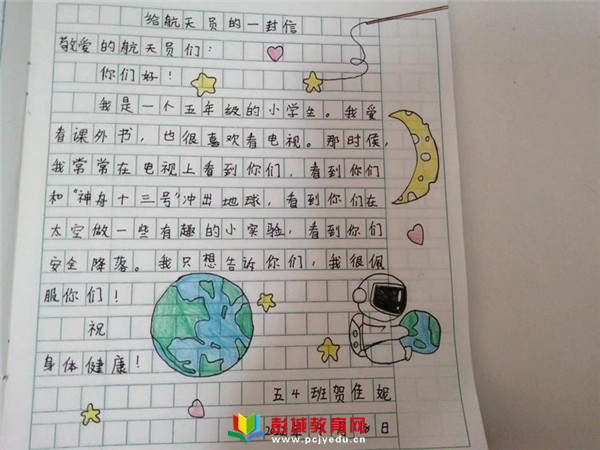 给航天员的一封信
敬爱的航天员们:
你们好!
我是一个五年级的小学生。我爱
看课外书,也很喜欢看电视。那时候,
我常常在电视上看到你们,看到你们
和“神舟十三号”冲出地球,看到你们在
太空做一些有趣的小实验,看到你们
安全降落。我只想告诉你们,我很佩
服你们!
祝
身体健康!
五4班贺佳妮
彭城教育网
www.pcjyedu.cn
日